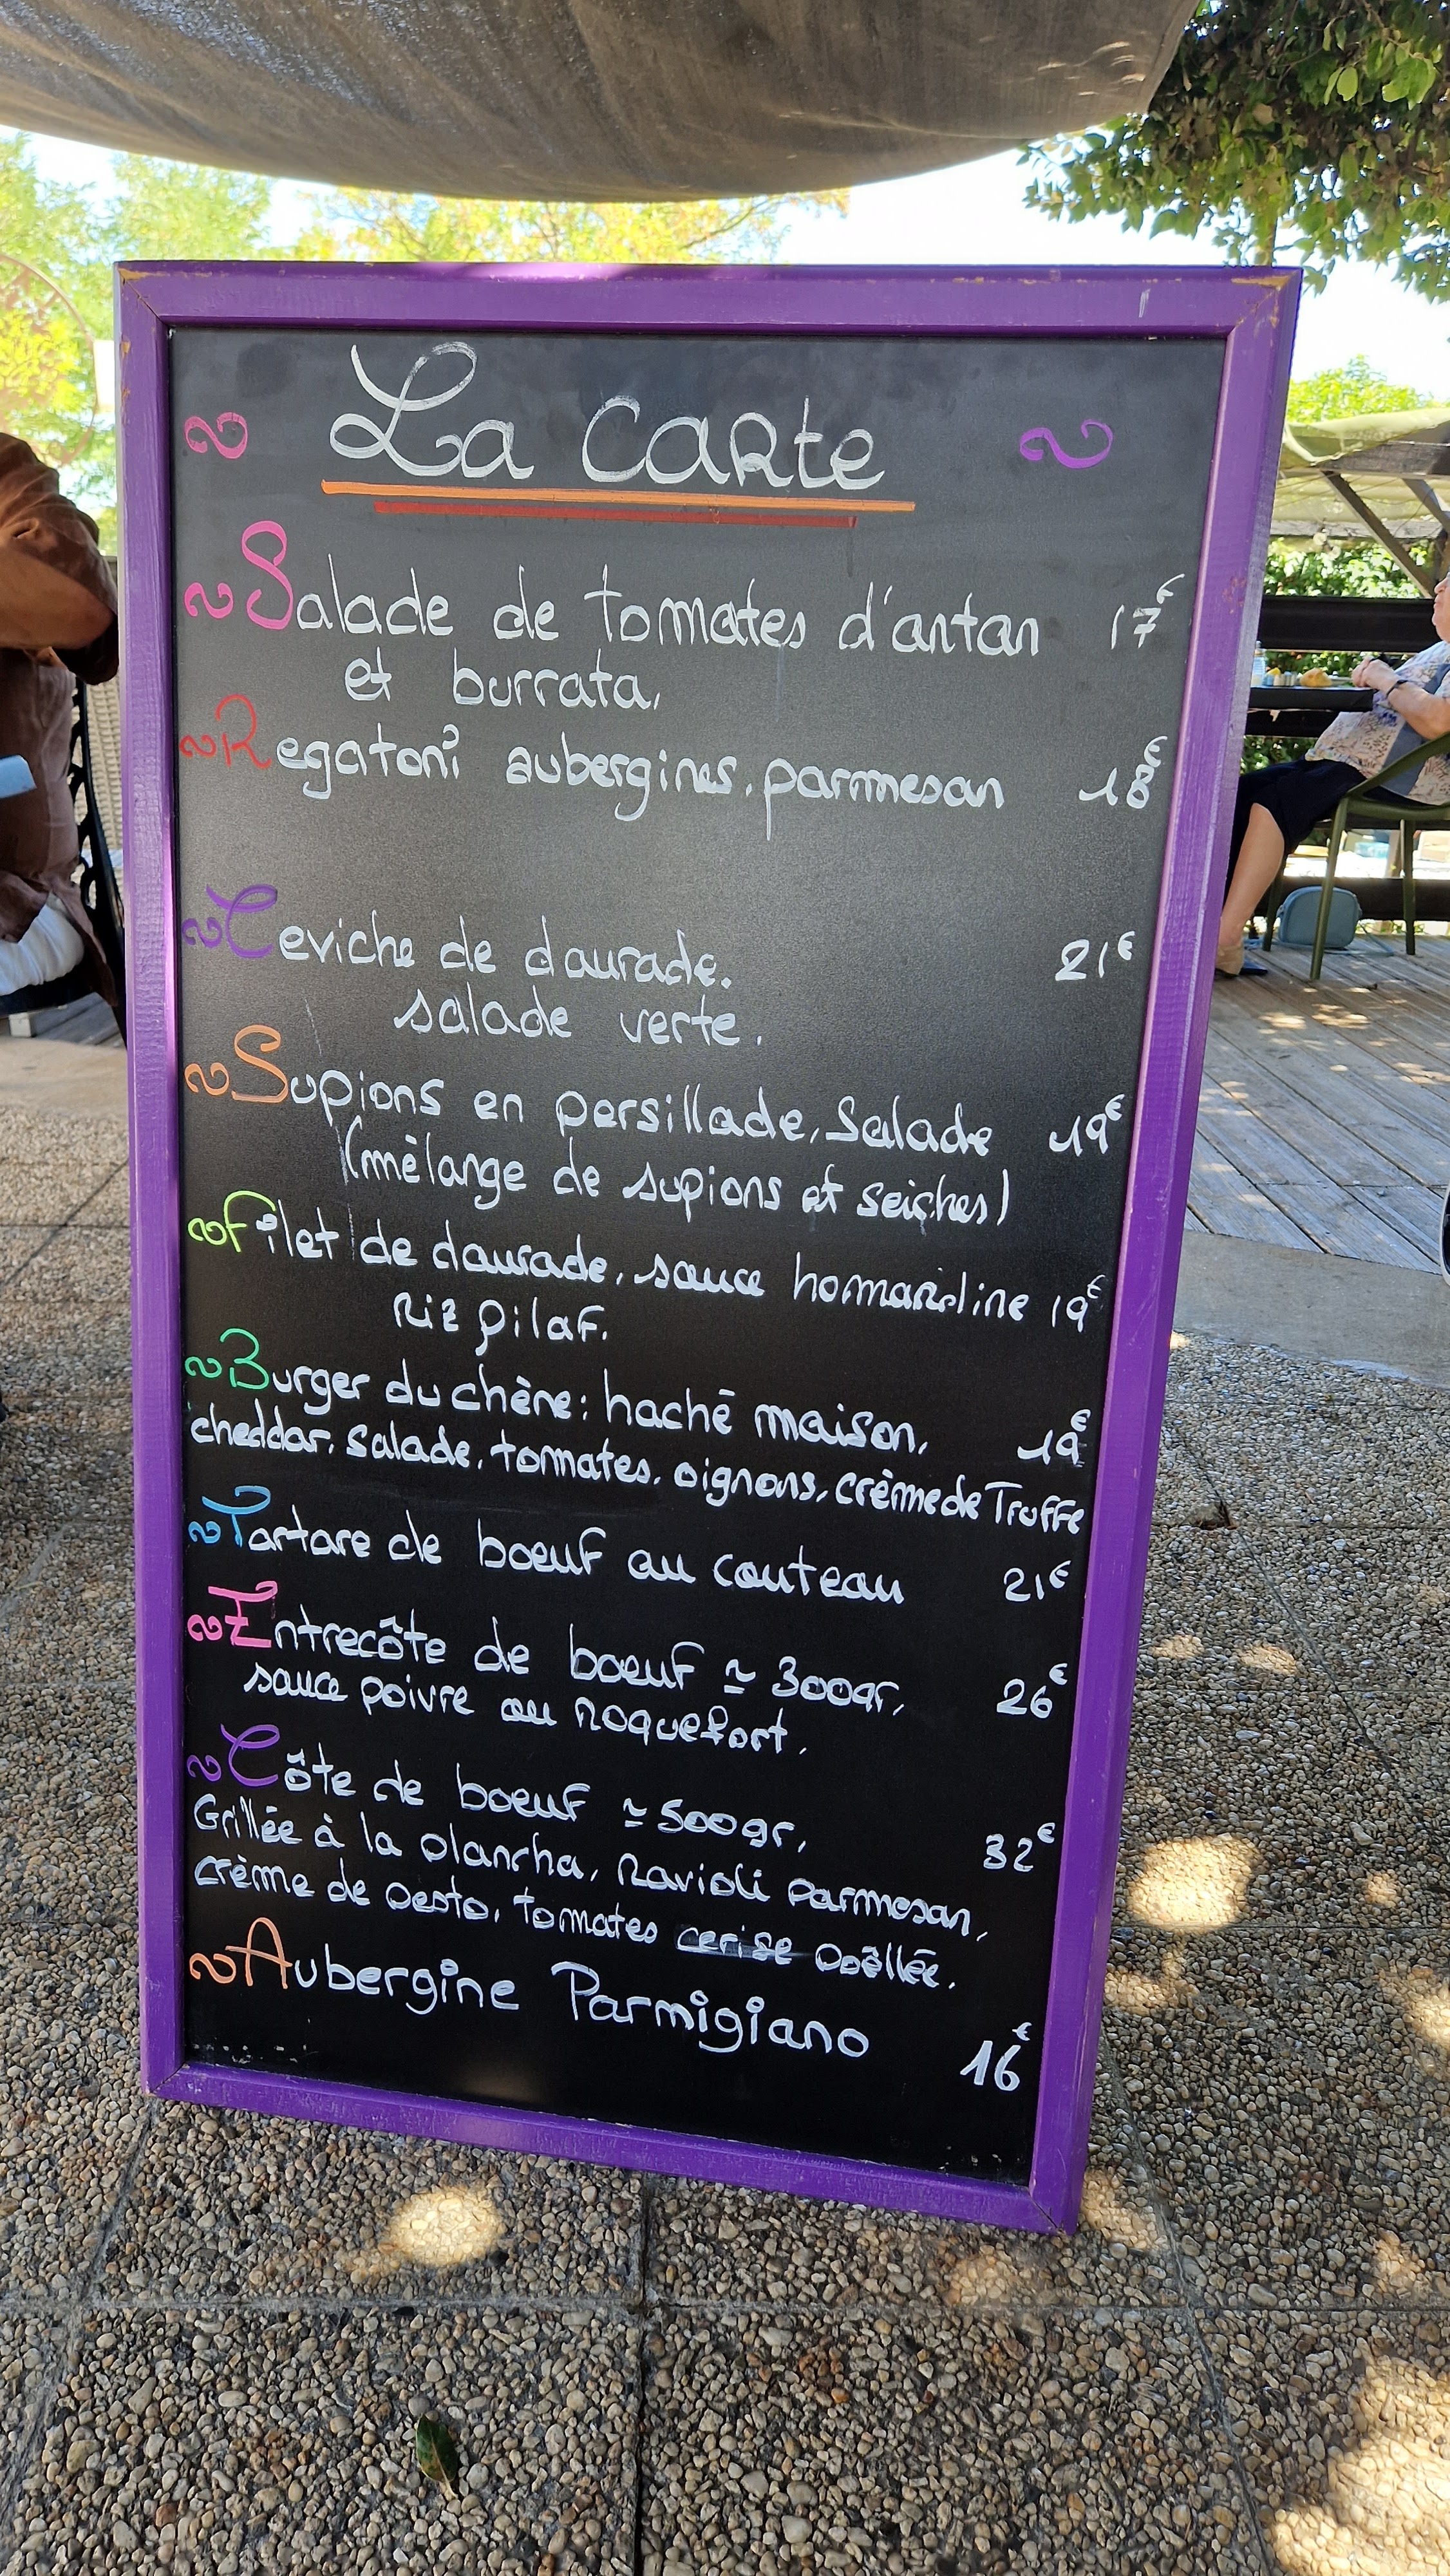 La Carte
Salade de tomates d'antan 17€
et burrata,
Regatoni aubergines, parmesan 18€
Ceviche de daurade. 21€
salade verte.
Supions en persillade, Salade 19€
(mèlange de supions et seiches)
Filet de daurade, sauce homardine 19€
Riz pilaf.
Burger du chène: haché maison, 19€
cheddar, salade, tomates, oignons, crème de Truffe
Tartare de boeuf au couteau 21€
Entrecôte de boeuf ≃ 300gr, 26€
sauce poivre ou Roquefort.
Côte de boeuf ≃ 500gr, 32€
Grillée à la plancha, Ravioli parmesan,
crème de pesto, tomates cerise poêlée.
Aubergine Parmigiano
16€